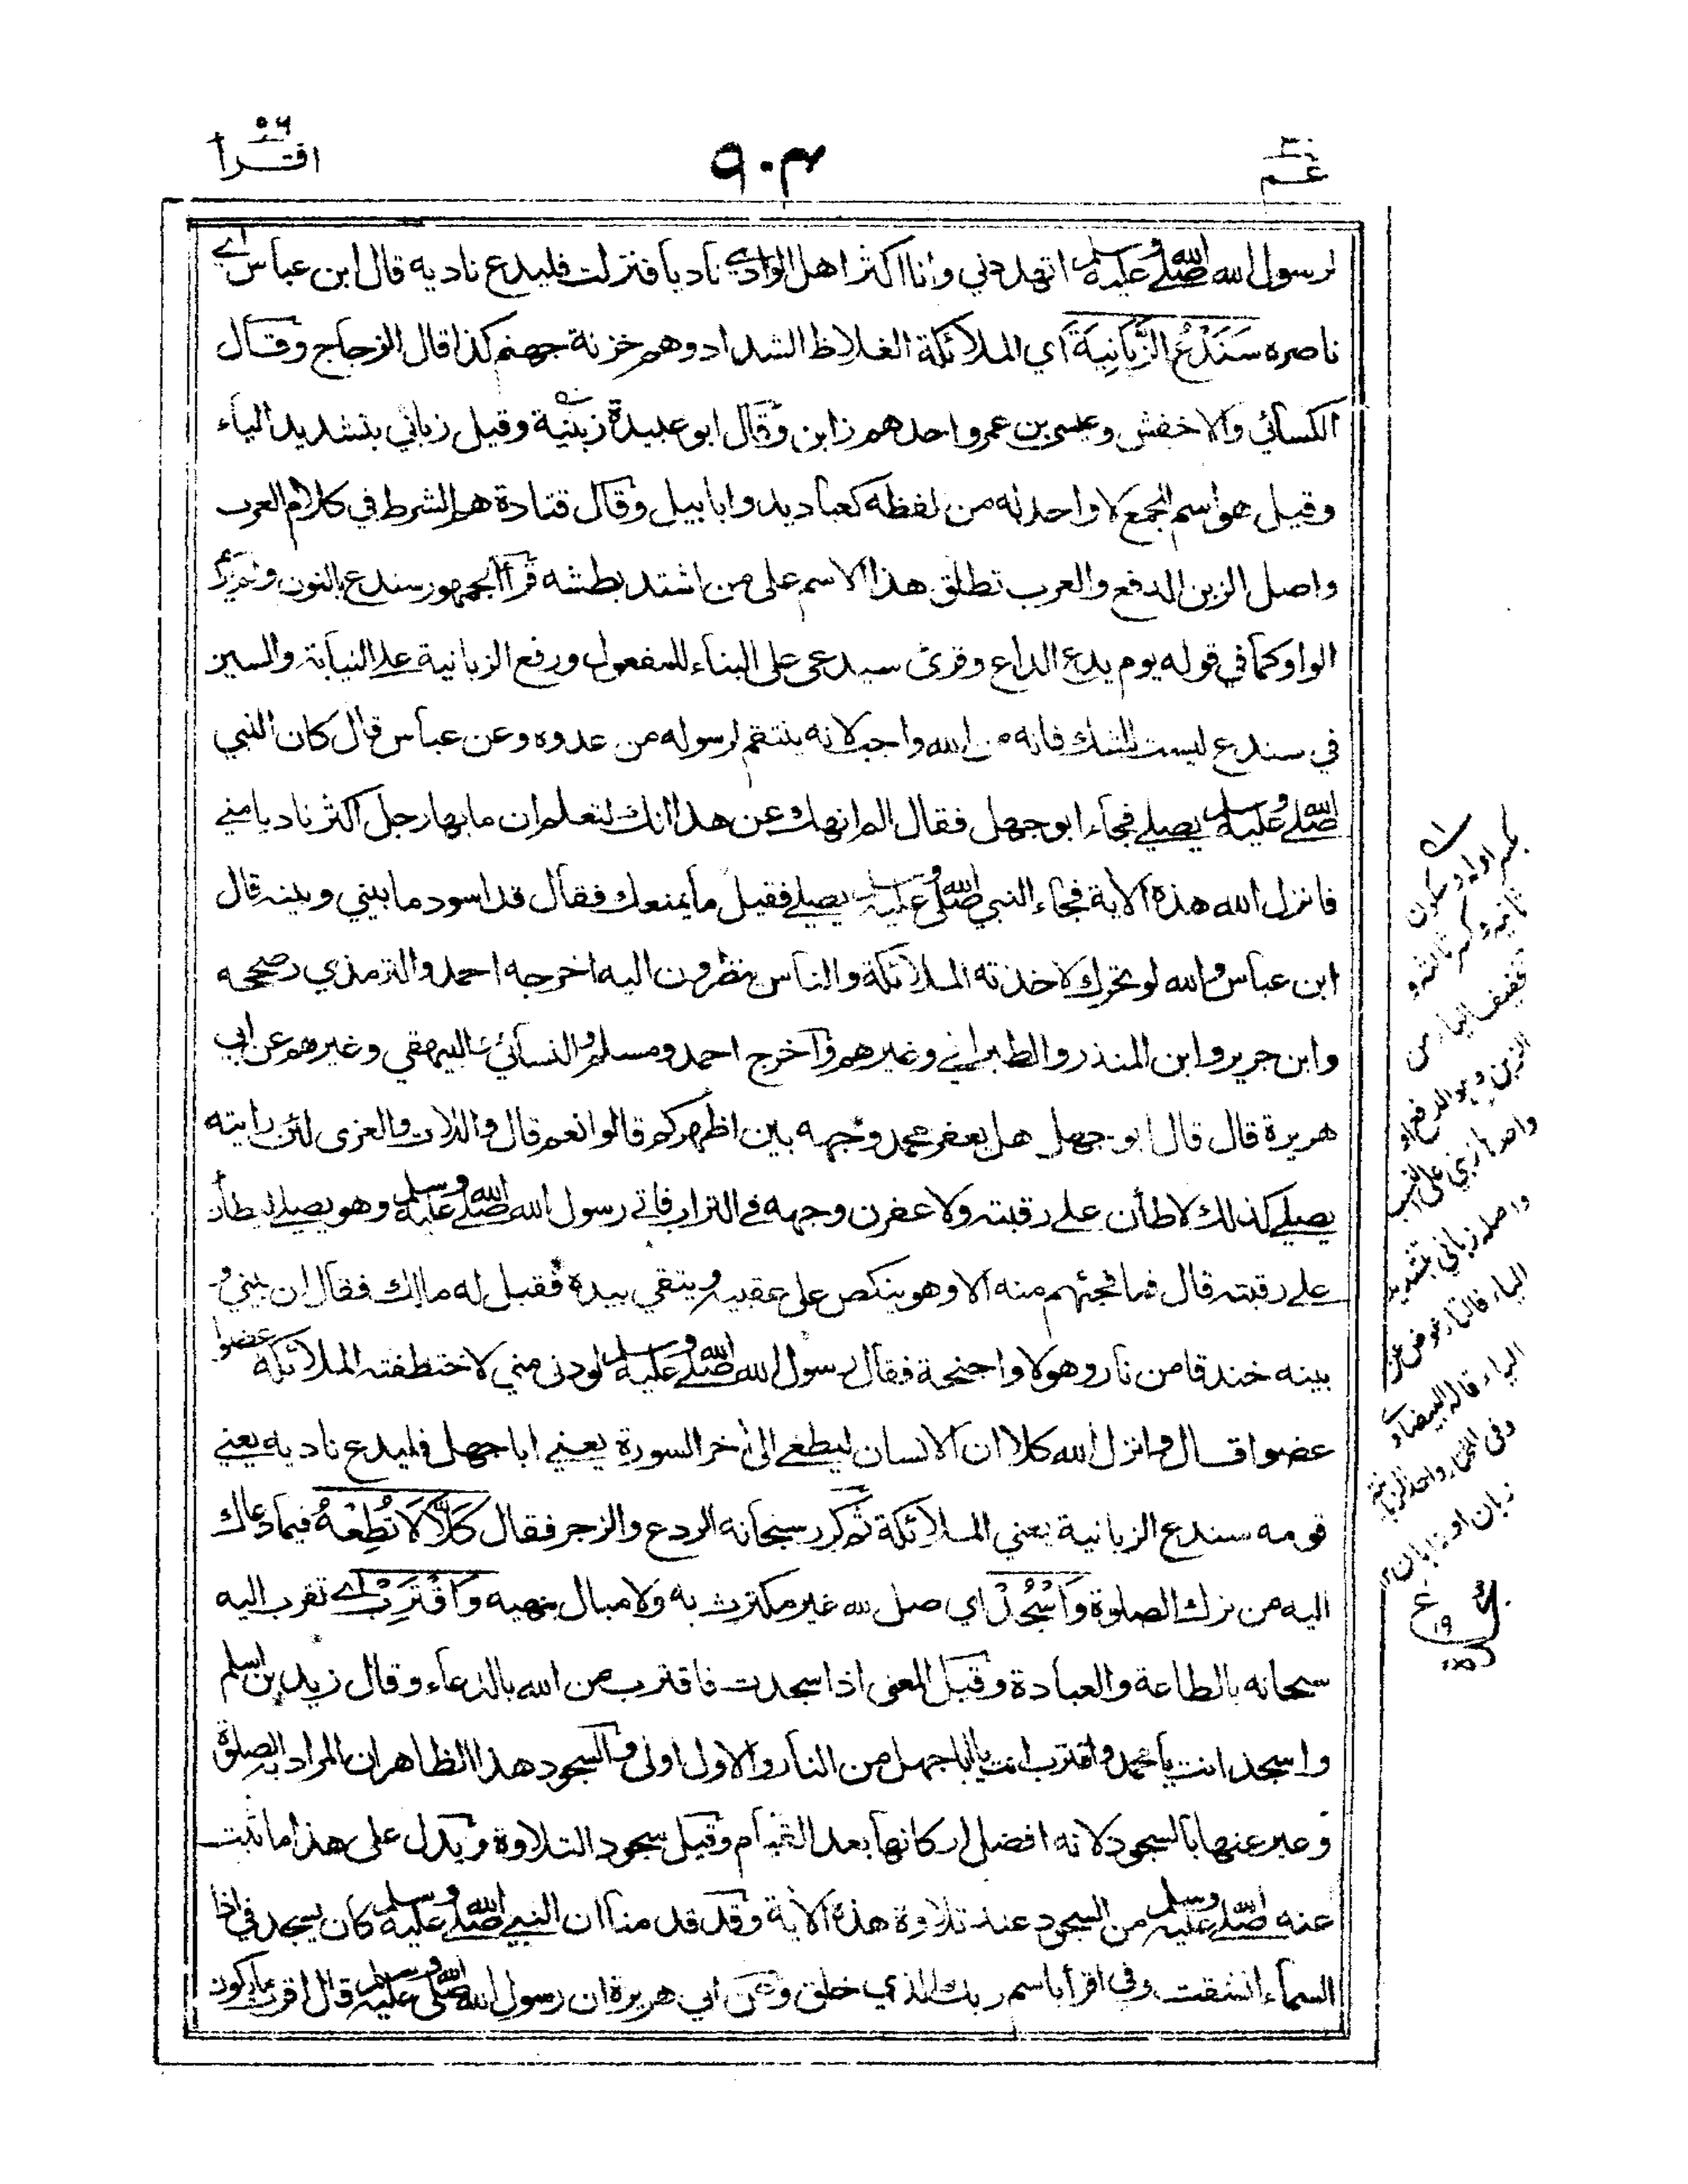 عم ٣٠
٩٠٣
اقترأ ٩٦
لرسول الله صلى الله عليه وسلم اتهددني وانا اكثر اهل الوادي ناديا فنزلت فليدع ناديه قال ابن عباس اي
ناصره سَنَدْعُ الزَّبَانِيَةَ اي الملائكة الغلاظ الشداد وهم خزنة جهنم كذا قال الزجاج وقال
الكسائي والاخفش وعيسى بن عمر واحدهم زابن وقال ابو عبيدة زبنية وقيل زباني بتشديد الياء
وقيل هو اسم للجمع لا واحد له من لفظه كعباديد وابابيل وقال قتادة هم الشرط في كلام العرب
واصل الزبن الدفع والعرب تطلق هذا الاسم على من اشتد بطشه قرأ الجمهور سندع بالنون ولم ير
الواو كما في قوله يوم يدع الداع وقرئ سيدعى على البناء للمفعول ورفع الزبانية على النيابة والسين
في سندع ليست للشك فانه من الله واجب لانه ينتقم لرسوله من عدوه وعن عباس قال كان النبي
صلى الله عليه وسلم يصلي فجاء ابو جهل فقال الم انهك عن هذا انك لتعلم ان ما بها رجل اكثر ناديا مني
فانزل الله هذه الاية فجاء النبي صلى الله عليه وسلم يصلي فقيل ما يمنعك فقال قد اسود ما بيني وبينه قال
ابن عباس والله لو تحرك لاخذته الملائكة والناس ينظرون اليه اخرجه احمد والترمذي وصححه
وابن جرير وابن المنذر والطبراني وغيرهم واخرج احمد ومسلم والنسائي والبيهقي وغيرهم عن ابي
هريرة قال قال ابو جهل هل يعفر محمد وجهه بين اظهركم قالوا نعم قال واللات والعزى لئن رايته
يصلي كذلك لاطأن على رقبته ولاعفرن وجهه في التراب فاتى رسول الله صلى الله عليه وسلم وهو يصلي ليطأ
على رقبته قال فما فجئهم منه الا وهو ينكص على عقبيه ويتقي بيده فقيل له مالك فقال ان بيني و
بينه خندقا من نار وهولا واجنحة فقال رسول الله صلى الله عليه وسلم لو دنى مني لاختطفته الملائكة عضوا
عضوا قال وانزل الله كلا ان الانسان ليطغى الى اخر السورة يعني ابا جهل فليدع ناديه يعني
قومه سندع الزبانية يعني الملائكة ثم كرر سبحانه الردع والزجر فقال كَلَّا لَا تُطِعْهُ فيما دعاك
اليه من ترك الصلوة وَاسْجُدْ اي صل لله غير مكترث به ولا مبال بنهيه وَاقْتَرِبْ اي تقرب اليه
سبحانه بالطاعة والعبادة وقيل المعنى اذا سجدت فاقترب من الله بالدعاء وقال زيد بن اسلم
واسجد انت يا محمد واقترب انت يا ابا جهل من النار والاول اولى والسجود هذا الظاهر ان المراد به الصلوة
وعبر عنها بالسجود لانه افضل اركانها بعد القيام وقيل سجود التلاوة ويدل على هذا ما ثبت
عنه صلى الله عليه وسلم من السجود عند تلاوة هذه الاية وقد قدمنا ان النبي صلى الله عليه وسلم كان يسجد في اذا
السماء انشقت وفي اقرأ باسم ربك الذي خلق وعن ابي هريرة ان رسول الله صلى الله عليه وسلم قال اقرب ما يكون
بكسر اوله وسكون
ثانيه وكسر ثالثه و
تخفيف الياء من
الزبن وهو الدفع او
واحدها زبني على النسب
واصله زباني بتشديد
الياء فالتاء عوض عن
الياء قاله البيضاوي
وفي المختار واحد الزبانية
زبان او زابن
ع
١٩